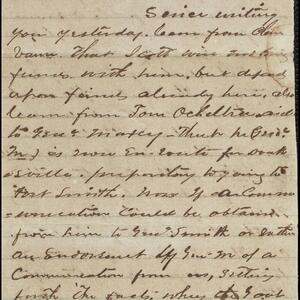 Since writing
you yesterday. learn from Genl
that Scott will not bring
funds with him, but depend
upon friends already here, also
learn from Tom Ochiltree aid
to Genl Maxey - That he (Genl
M) is now En-route for Doak
sville. preparatory to going to
Fort Smith. Now if a Commu
nication could be obtained
from him to Genl Smith or rather
an Endorsement by Genl M of a
Communication from us, setting
forth the facts, why